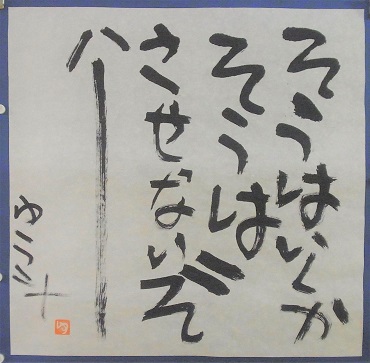 そうはいくか
そうは
させないぞ
ハー